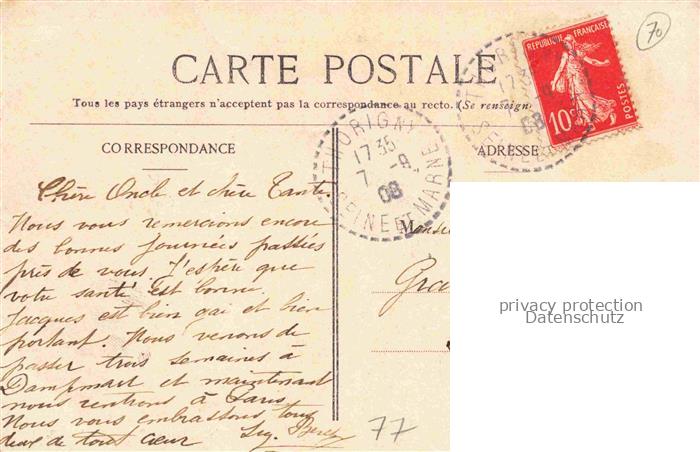 70
REPUBLIQUE FRANÇAISE
10c
POSTES
CARTE POSTALE
Tous les pays étrangers n'acceptent pas la correspondance au recto. (Se renseign
CORRESPONDANCE
ADRESSE
THORIGNY
17 35
7 -9
08
SEINE ET MARNE
Chère Oncle et chère Tante.
Nous vous remercions encore
des bonnes journées passées
près de vous. J'espère que
votre santé est bonne.
Jacques est bien gai et bien
portant. Nous venons de
passer trois semaines à
Dampmart et maintenant
nous rentrons à Paris
Nous vous embrassons tous
deux de tout cœur
Monsie
Gra
77
privacy protection
Datenschutz